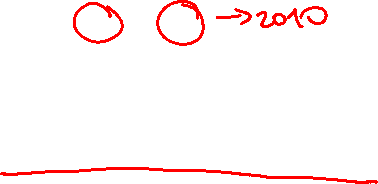 →2010